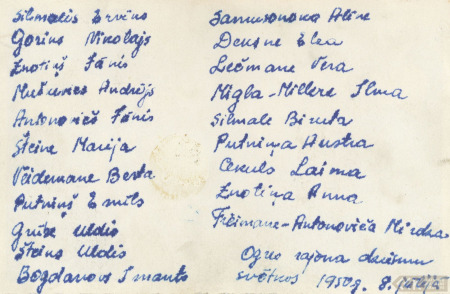 Silmalis Ervins
Goriņs Nikolajs
Znotiņš Jānis
Mucenieks Andrejs
Antonovičs Jānis
Šteine Marija
Veidemane Berta
Putniņš Emīls
Uldis
Šteins Uldis
Bogdanovs Imants
Samusonoka Alise
Elea
Lečmane Vera
Migla-Millere Ilma
Silmale Biruta
Putniņa Austra
Cekuls Laima
Znotiņa Anna
Frīmane-Antonoviča Mirdza
Ogres rajona dziesmu
svētkos 1950g. 8. jūlijā